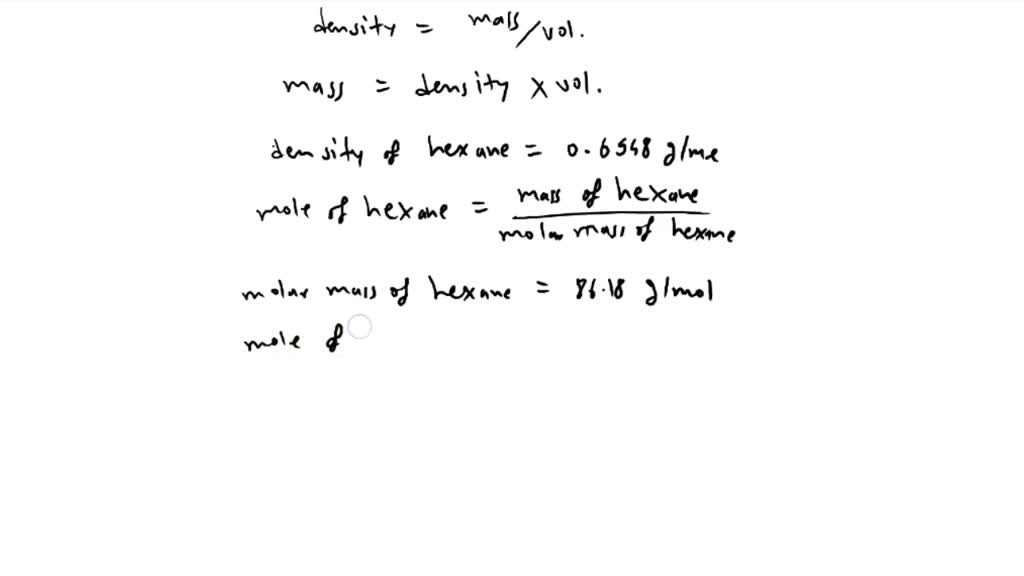 density = mass/vol.
mass = density x vol.
density of hexane = 0.6548 g/ml
mole of hexane = mass of hexane
molar mass of hexane
molar mass of hexane = 86.18 g/mol
mole of